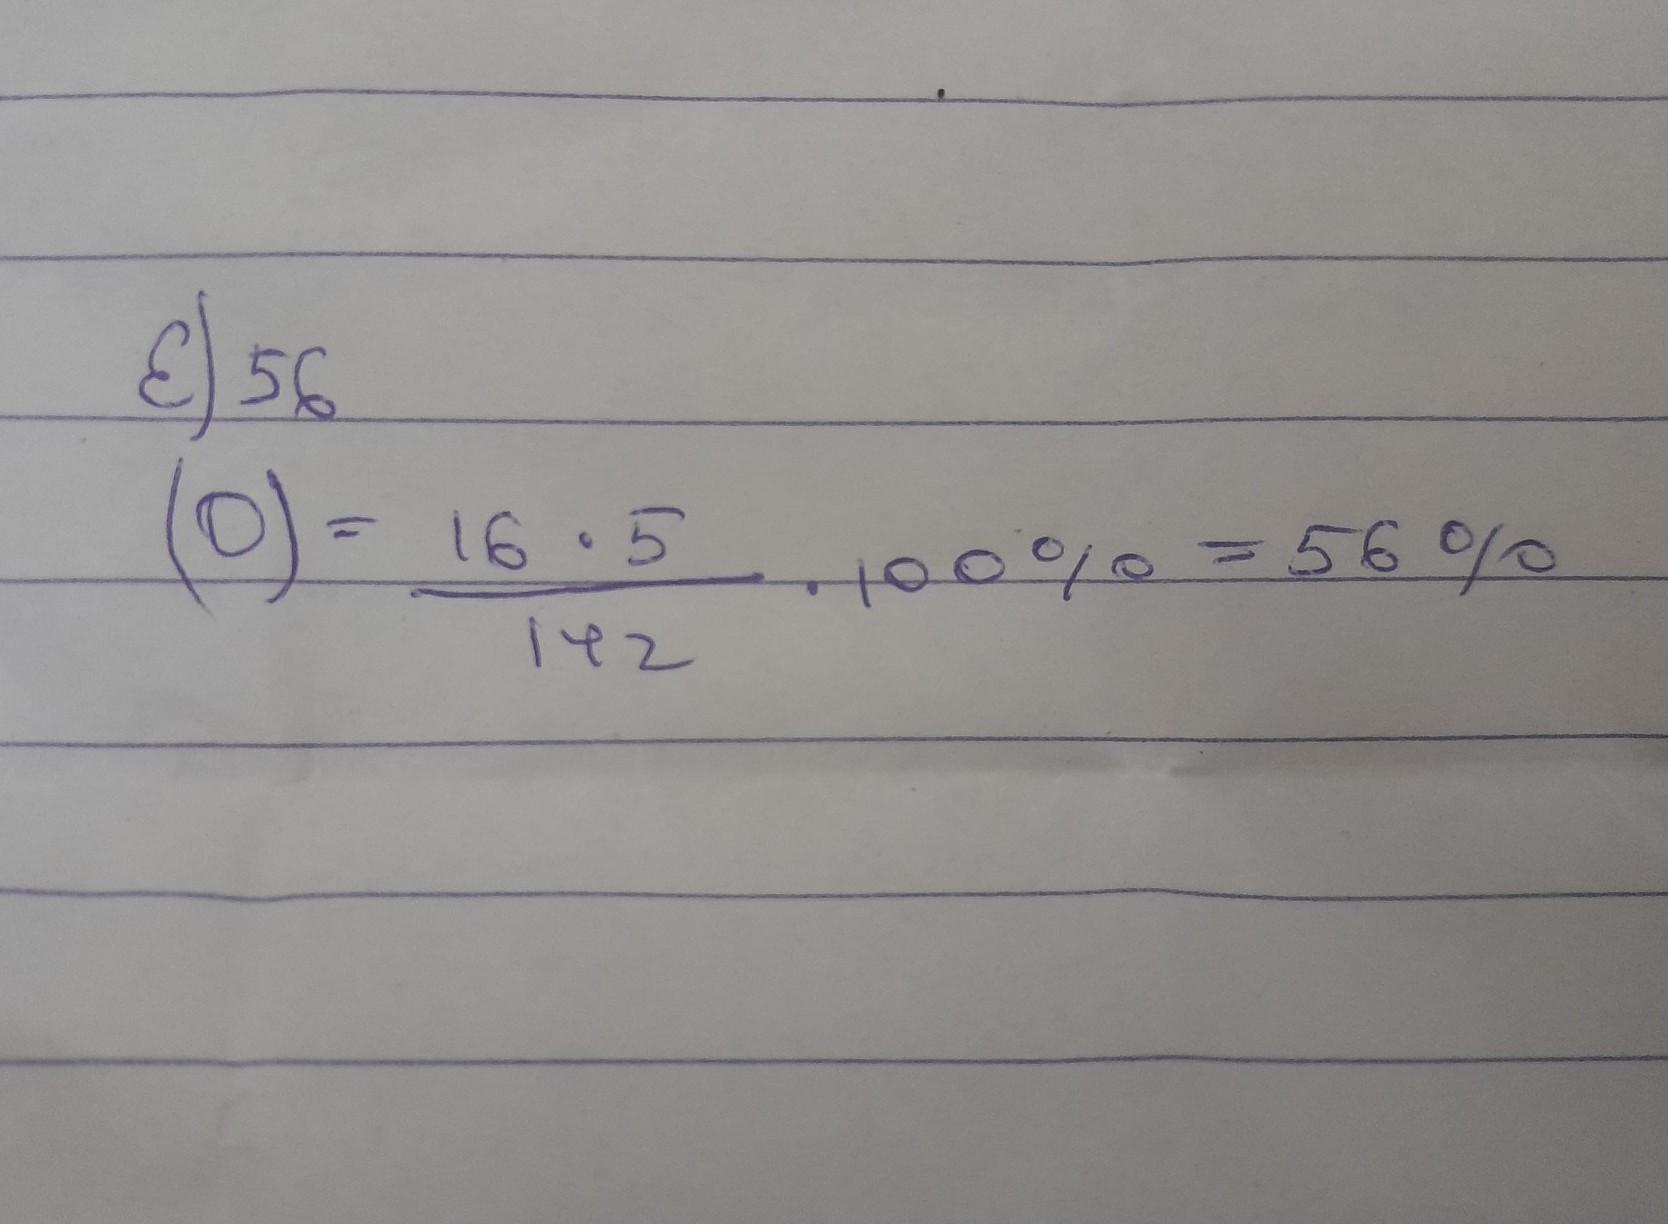 E) 56
(O) = 16 · 5 / 142 · 100% = 56%